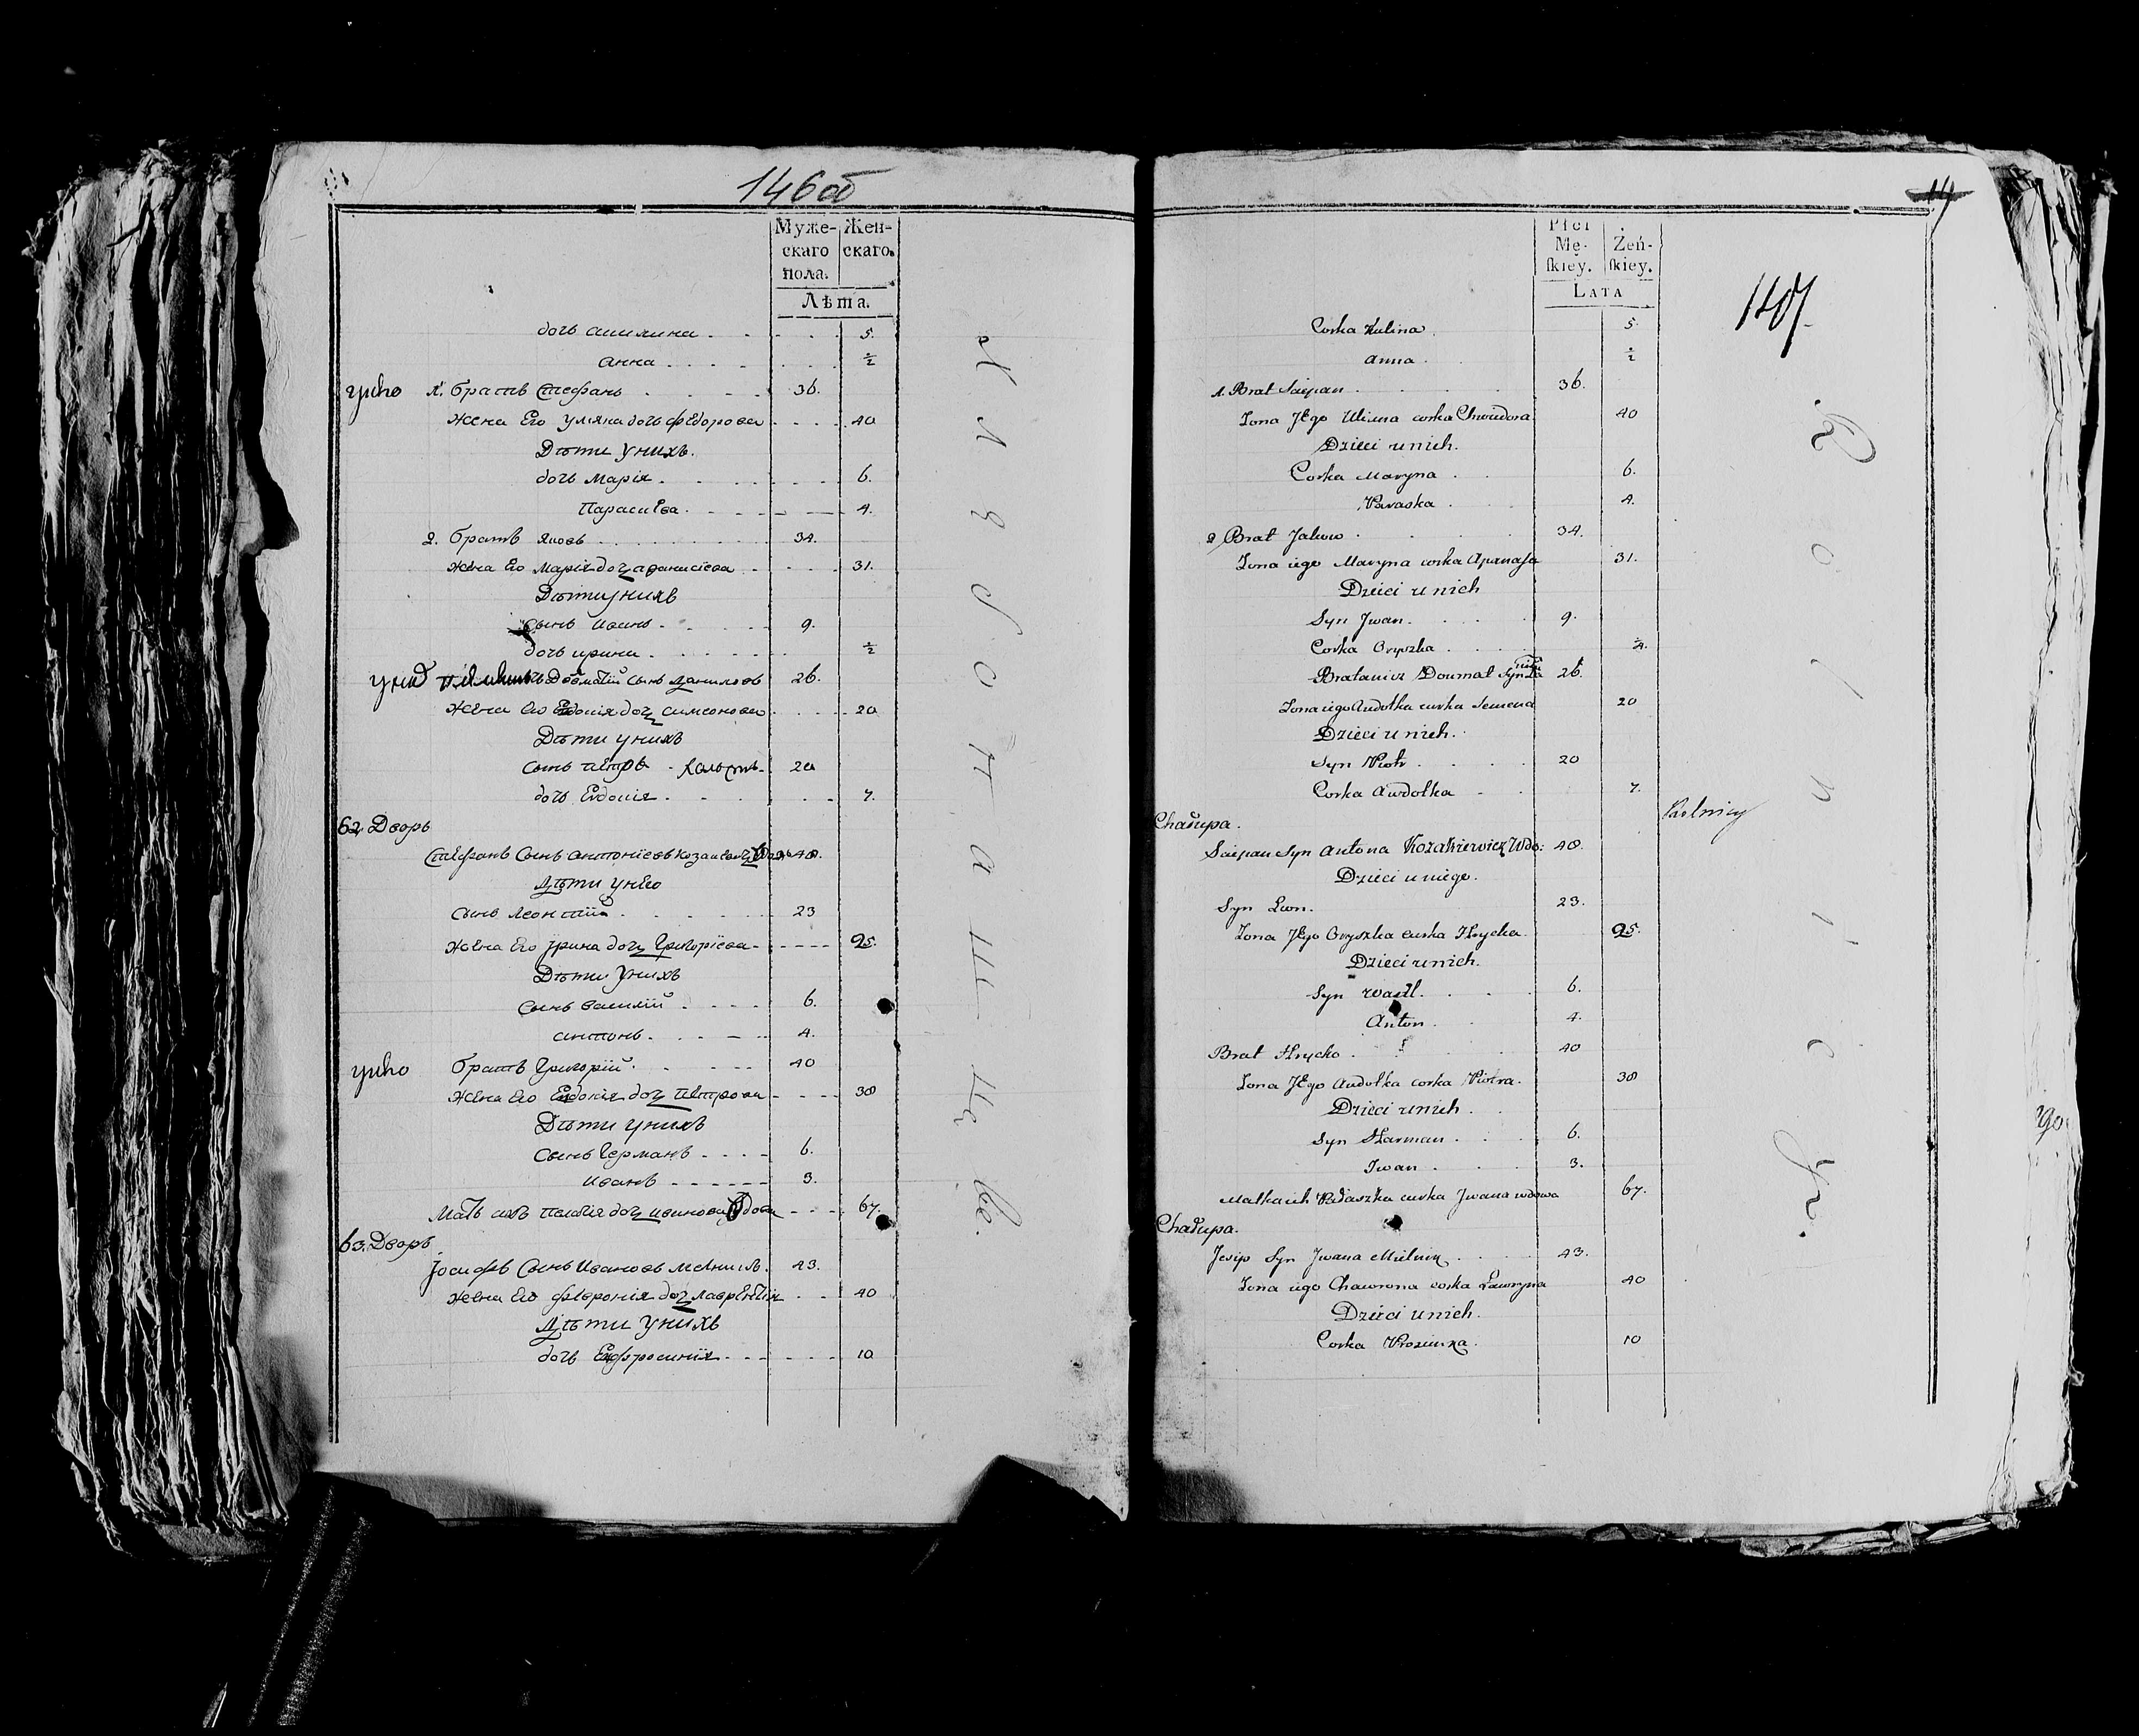 146об
Муже- Жен-
скаго скаго.
пола.
Лѣта.
дочь Акилина 5.
Анна ½
1. братъ Стефанъ 36.
жена Его Уляна дочь Федорова 40
Дѣти унихъ.
дочь Марія 6.
Параскева 4.
2. братъ Яковъ 34.
жена Его Марія дочь Афанасіева 31.
Дѣти унихъ
сынъ Иванъ 9.
дочь Ирина ½
Доматій сынъ Даниловъ 26.
жена Его Евдокія дочь Симеонова 20
Дѣти унихъ
сынъ Петръ 20
дочь Евдокія 7.
62 Дворъ
Стефанъ Сынъ Антоніевъ Козакевичъ Вдовъ 48.
Дѣти унЕго
сынъ Леонтій 23
жена Его Ірина дочь Григоріева 25.
Дѣти Унихъ
сынъ Василій 6.
Антонъ 4.
братъ Григорій 40
жена Его Евдокія дочь Петрова 38
Дѣти унихъ
сынъ Германъ 6.
Иванъ 3.
Мать ихъ Пелагія дочь Иванова Вдова 67.
63. Дворъ
Іосифъ Сынъ Ивановъ Мелникъ 43.
жена Его Февронія дочь Лаврентія 40
Дѣти Унихъ
дочь Евфросинія 10
Płci
Mę- Żeń-
skiey. skiey.
LATA
147.
Corka Kulina 5.
Anna ½
1. Brat Sciepan 36.
Zona Jego Uliana corka Chwedora 40
Dzieci unich.
Corka Maryna 6.
Paraska 4.
2 Brat Jakow 34.
Zona iego Maryna corka Apanasa 31.
Dzieci unich
Syn Jwan. 9.
Corka Oryszka
Bratanicz Doumat Syn 26.
Zona iego Audotka corka Semena 20
Dzieci unich.
Syn Piotr 20
Corka Awdotka 7.
Chałupa. Rolnicy
Sciepan Syn Antona Kozakiewicz Wdo: 48.
Dzieci uniego.
Syn Lwon. 23.
Zona Jego Oryszka corka Hrycka 25.
Dzieci unich.
Syn Wasil. 6.
Anton. 4.
Brat Hrycko 40
Zona Jego Audotka corka Piotra. 38
Dzieci unich
Syn Harman 6.
Iwan 3.
Matka ich Pałaszka corka Jwana wdowa 67.
Chałupa.
Jesip Syn Jwana Mielnik 43.
Zona iego Chawrona corka Ławryna 40
Dzieci unich.
Corka Prosimka 10